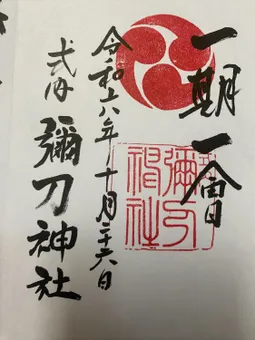 一期一會
令和六年十月二十六日
式内 彌刀神社
彌刀神社